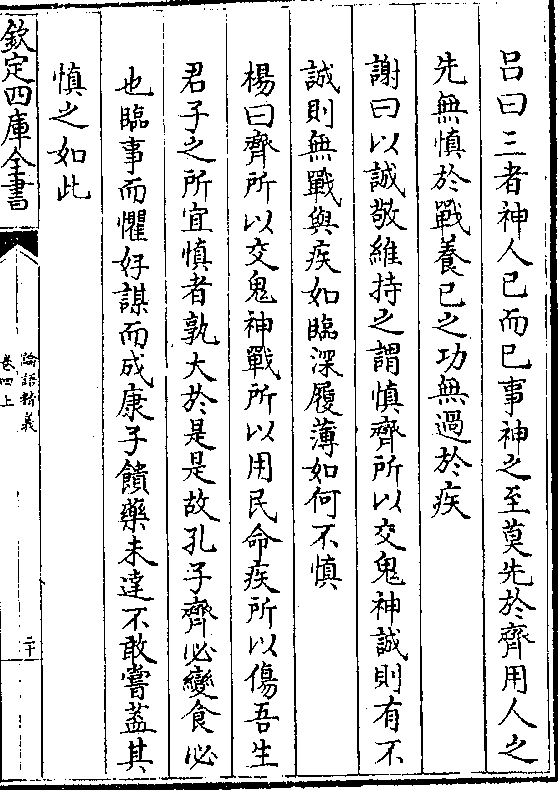 呂曰三者神人已而已事神之至莫先於齊用人之
先無慎於戰養已之功無過於疾
謝曰以誠敬維持之謂慎齊所以交鬼神誠則有不
誠則無戰與疾如臨深履薄如何不慎
楊曰齊所以交鬼神戰所以用民命疾所以傷吾生
君子之所宜慎者孰大於是是故孔子齊必變食必
也臨事而懼好謀而成康子饋藥未達不敢嘗葢其
慎之如此
欽定四庫全書
論語精義
卷四上
二十